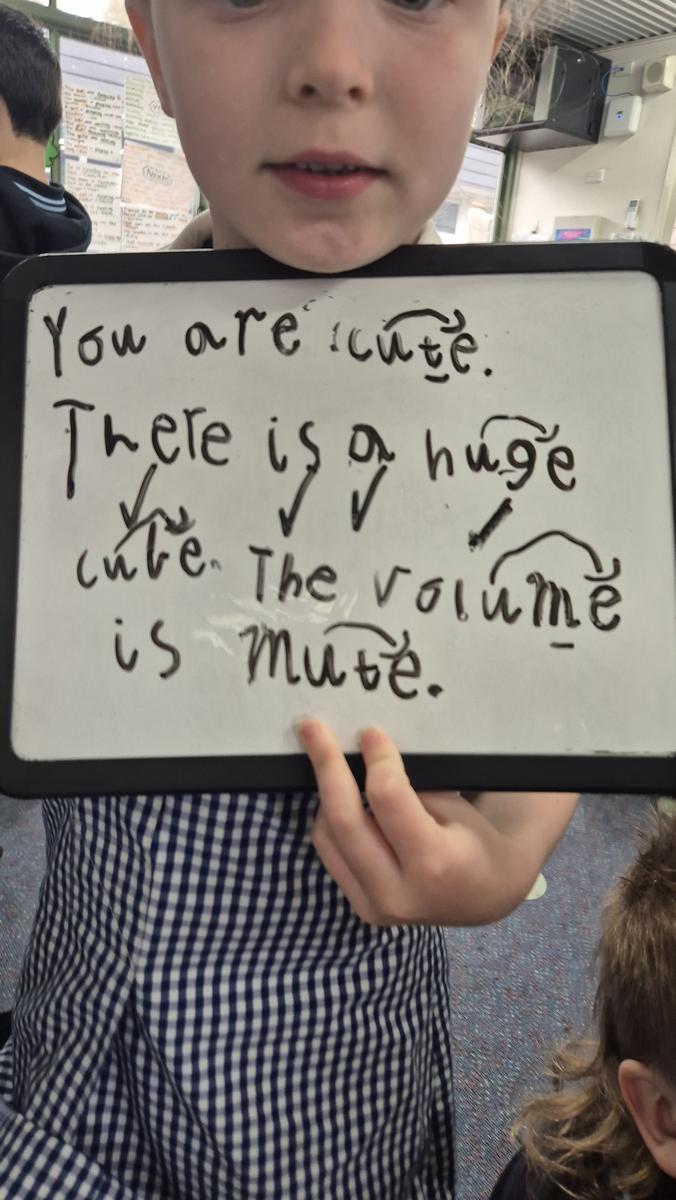 You are cute.
There is a huge
cube. The volume
is mute.